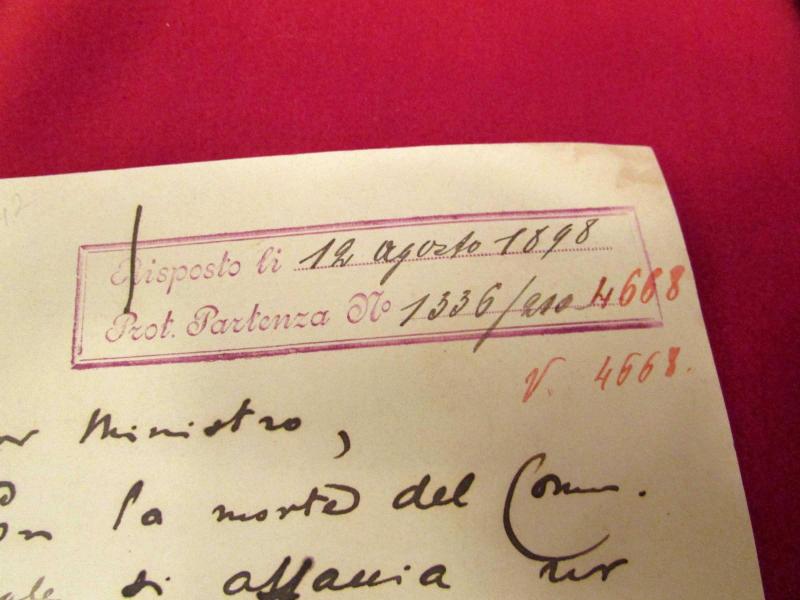 Risposto li 12 agosto 1898
Prot. Partenza No 1336/ 4668
V. 4668.
Ministro,
la morte del Comm.
si affaccia